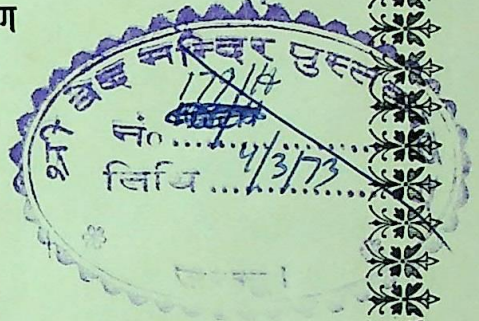 ण
श्री वेद मन्दिर पुस्त
179/A
नं०..........
तिथि ....4/3/73......